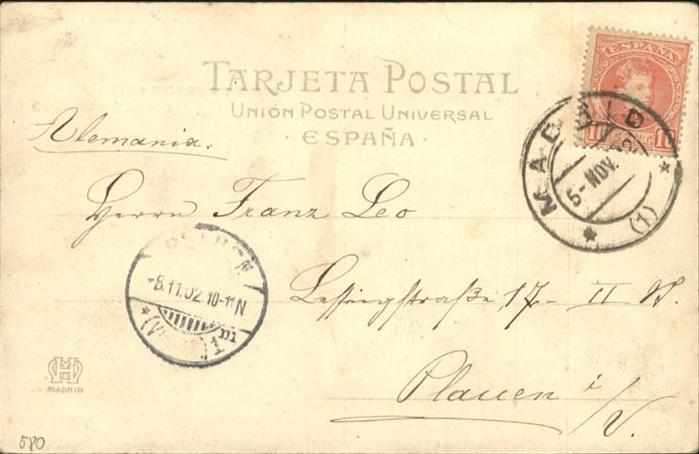 ESPAÑA
10 10
TARJETA POSTAL
UNIÓN POSTAL UNIVERSAL
· ESPAÑA ·
Alemania.
MADRID
5- NOV.
(1)
Herrn Franz Leo
8.11.02.10-11N
1
Lessingstraße, 17 - II
Plauen i/V.
MADRID
580